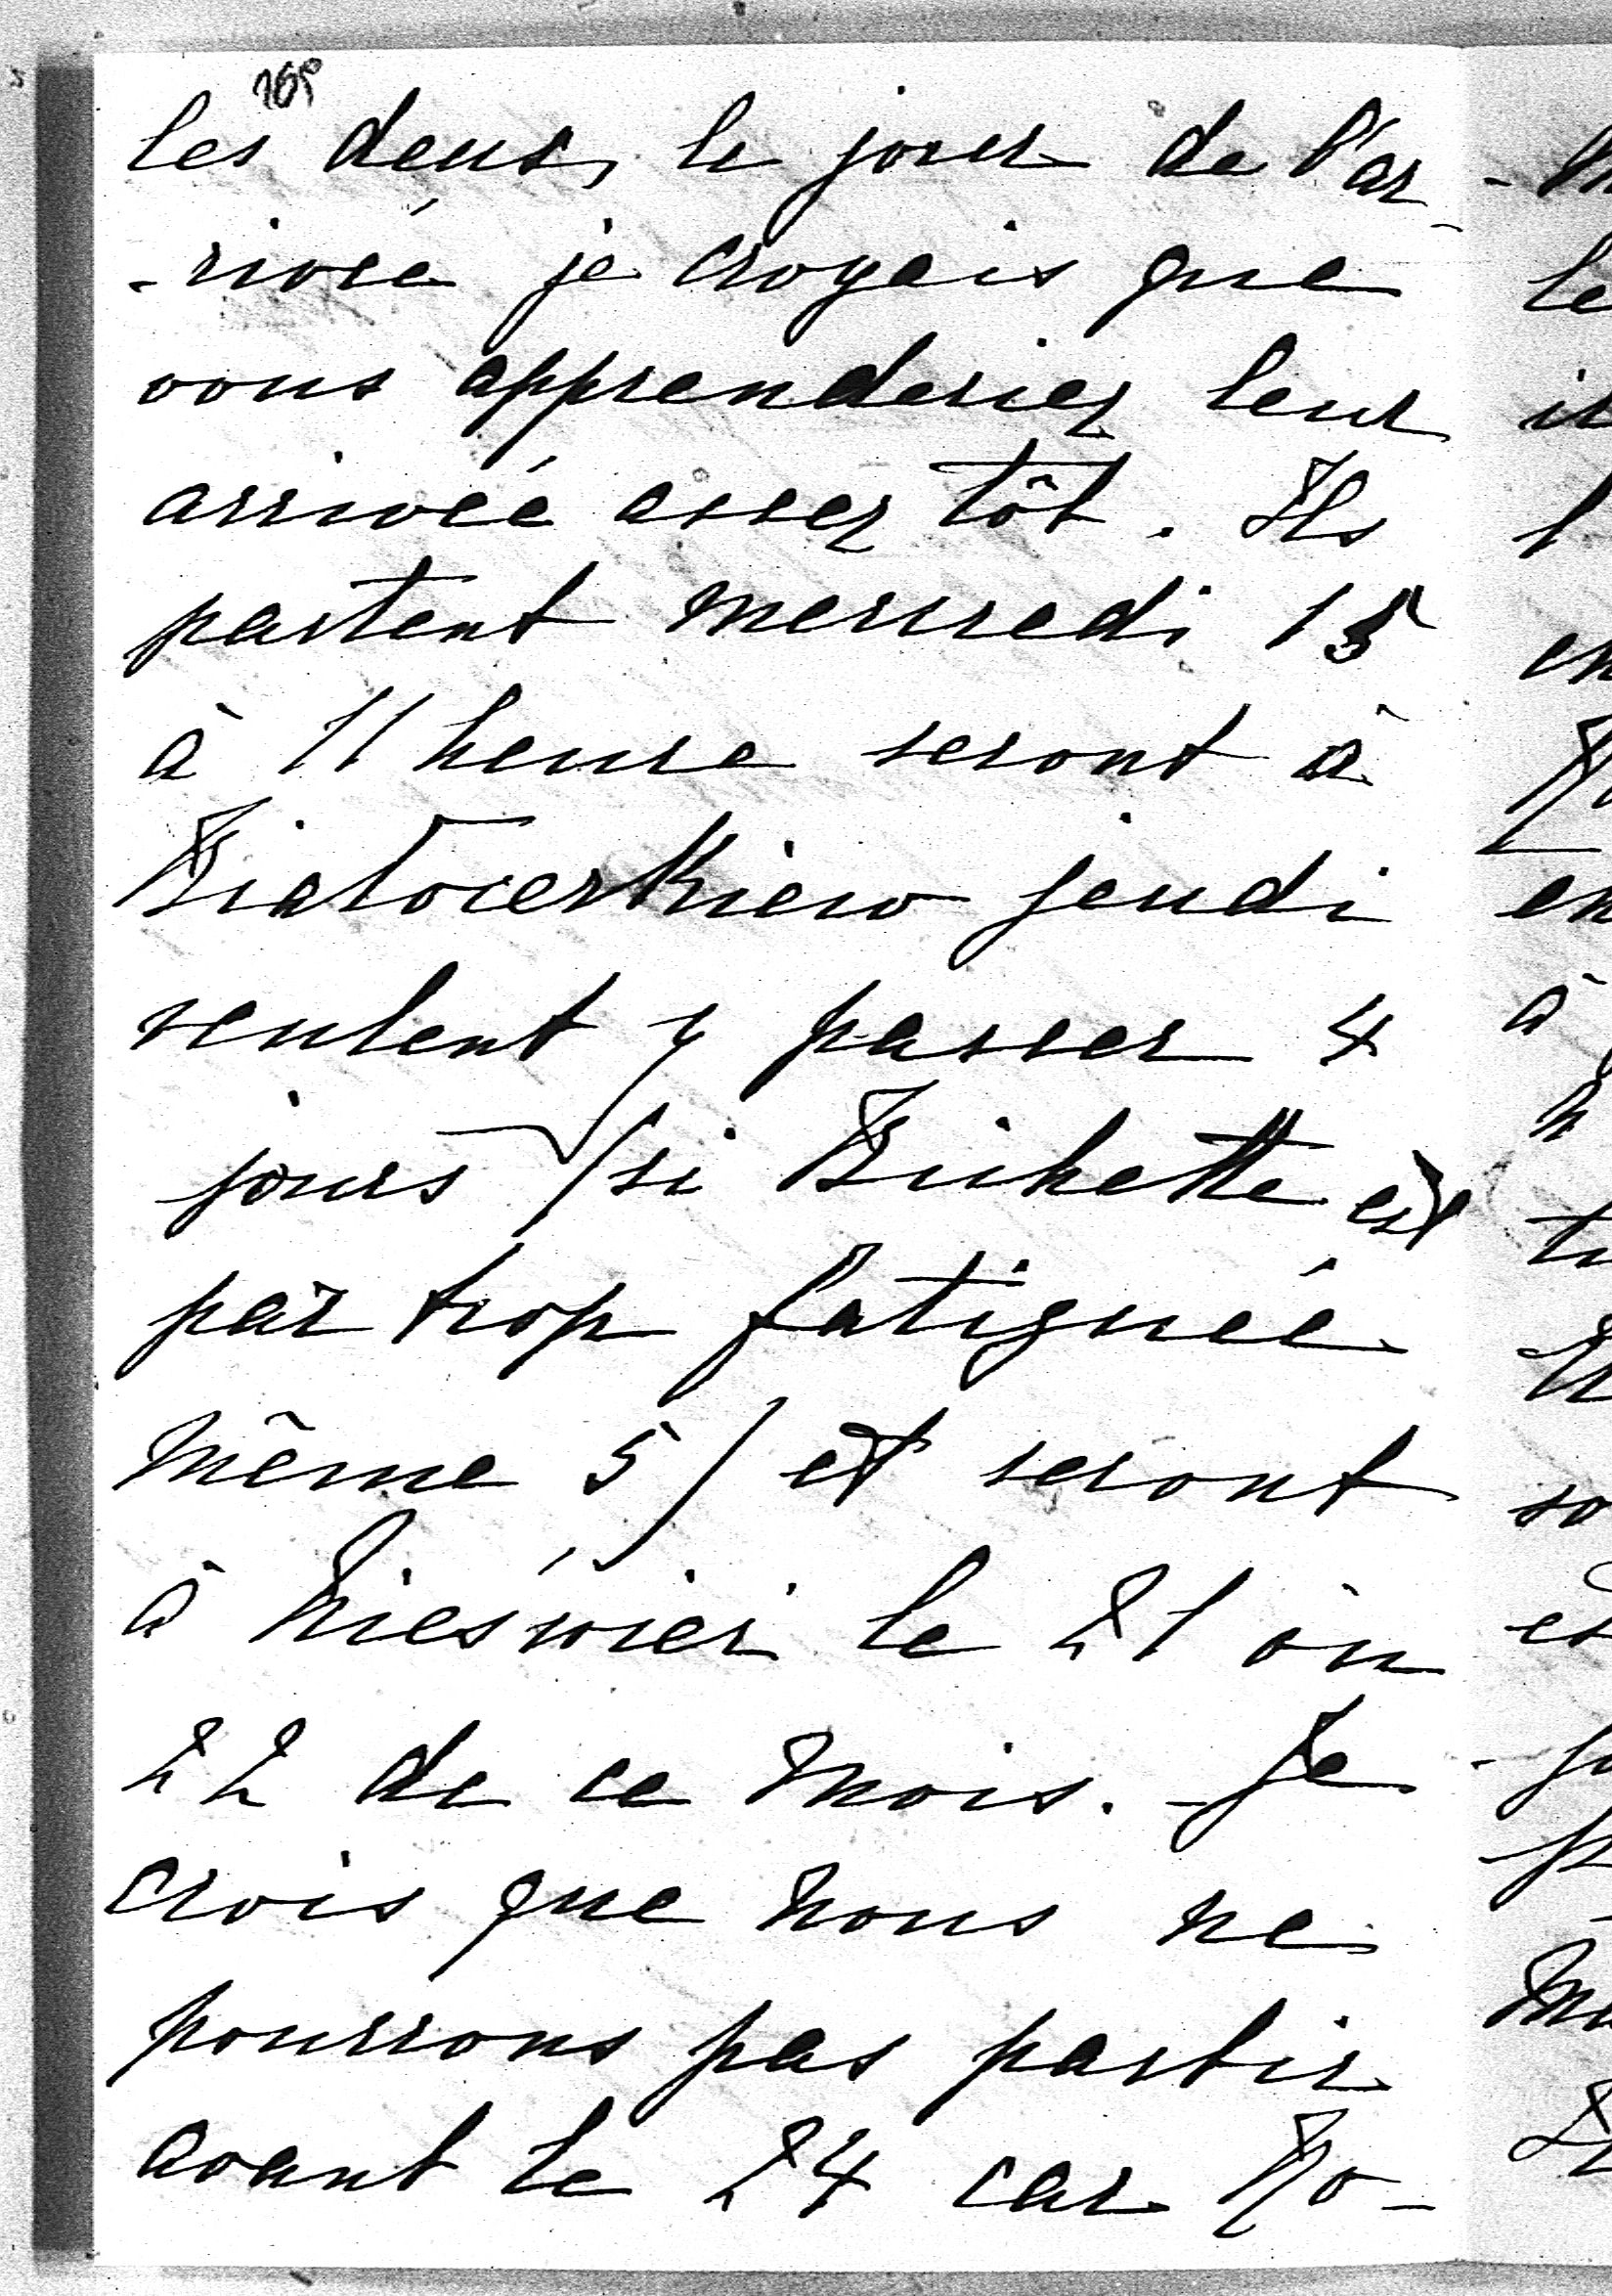 les deux, le jour de l'ar-
-rivée je croyais que
vous apprenderiez leur
arrivée assez tôt. Ils
partent mercredi 15
à 11 heure seront à
Białocerkiew jeudi
veulent y passer 4
jours (si Bichette est
par trop fatiguée
même 5) et seront
à Nieśwież le 21 ou
22 de ce mois. - Je
crois que nous ne
pourrons pas partir
avant le 24 car Ro-